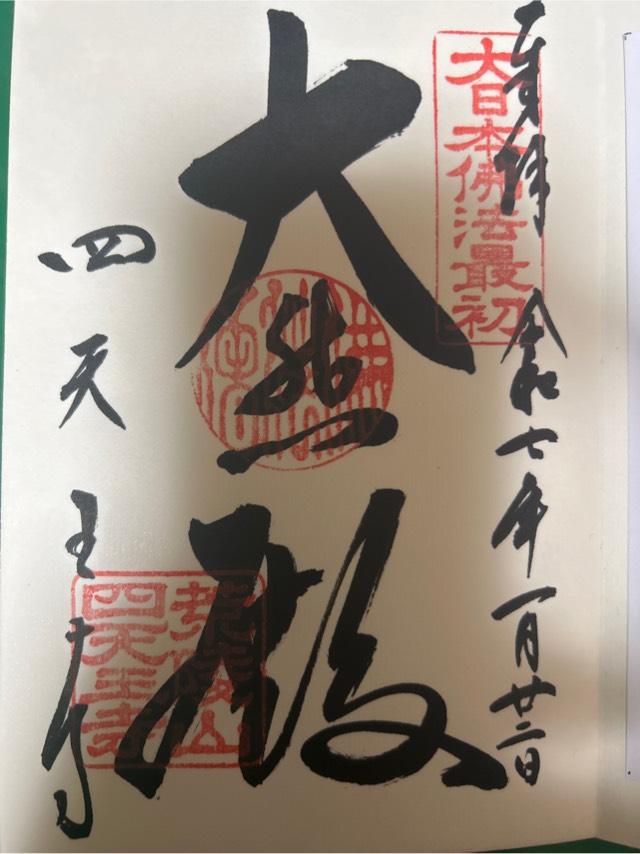 奉拝 令和七年一月廿二日
大日本佛法最初
大悲殿
四天王寺
荒陵山
四天王寺